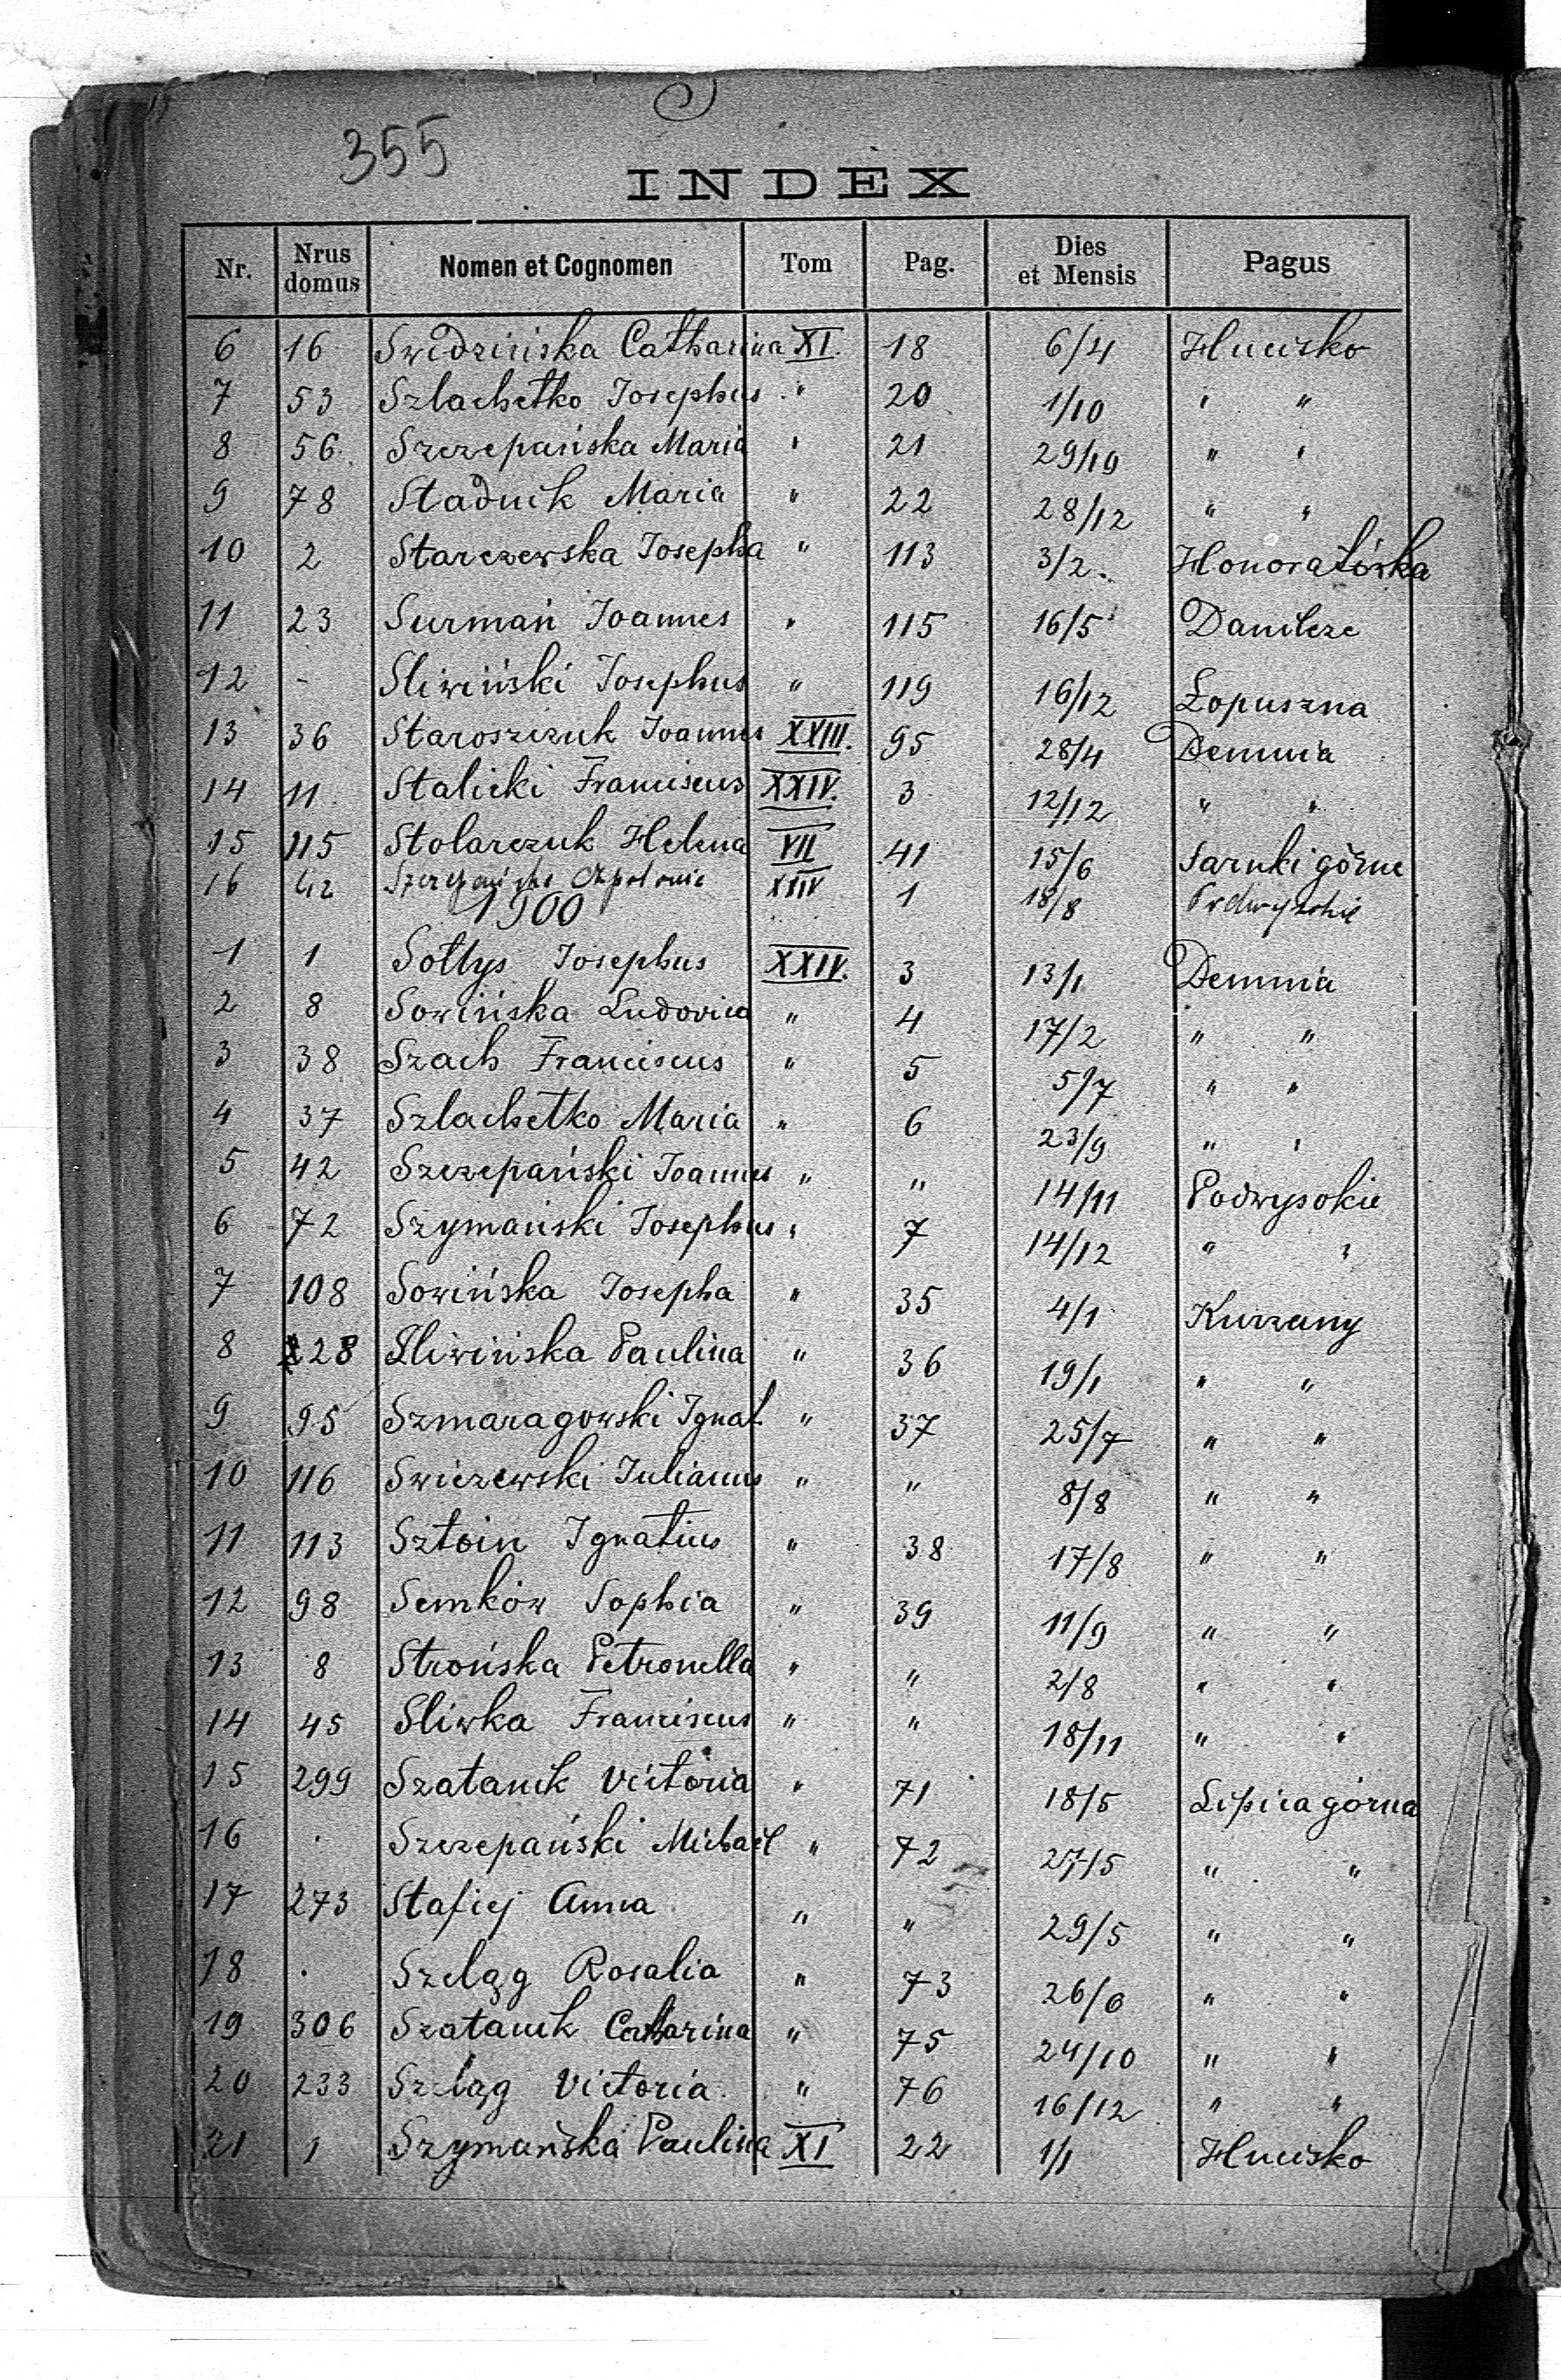 355
INDEX
Nr. Nrus domus Nomen et Cognomen Tom Pag. Dies et Mensis Pagus
6 16 Swidzińska Catharina XI. 18 6/4 Hucisko
7 53 Szlachetko Josephus " 20 1/10 " "
8 56 Szczepańska Maria " 21 29/10 " "
9 78 Stadnik Maria " 22 28/12 " "
10 2 Starczewska Josepha " 113 3/2. Honoratówka
11 23 Surmań Joannes " 115 16/5 Danilcze
12 - Sliwiński Josephus " 119 16/12 Łopuszna
13 36 Staroszczuk Joannes XXIII. 95 28/4 Demnia
14 11 Stalicki Franciscus XXIV. 3 12/12 " "
15 115 Stolarczuk Helena VII 41 15/6 Sarnki górne
16 42 Szczepańska Apolonia XXIV 1 18/8 Podwysokie
1900
1 1 Sołtys Josephus XXIV. 3 13/1 Demnia
2 8 Sowińska Ludovica " 4 17/2 " "
3 38 Szach Franciscus " 5 5/7 " "
4 37 Szlachetko Maria " 6 23/9 " "
5 42 Szczepański Joannes " " 14/11 Podwysokie
6 72 Szymański Josephus " 7 14/12 " "
7 108 Sowińska Josepha " 35 4/1 Kurzany
8 228 Sliwińska Paulina " 36 19/1 " "
9 95 Szmaragowski Ignat. " 37 25/7 " "
10 116 Swiczewski Julianus " " 8/8 " "
11 113 Sztoin Ignatius " 38 17/8 " "
12 98 Semków Sophia " 39 11/9 " "
13 8 Strońska Petronella " " 2/8 " "
14 45 Sliwka Franciscus " " 18/11 " "
15 299 Szatanik Victoria " 71 18/5 Lipica górna
16 . Szczepański Michaël " 72 27/5 " "
17 273 Stafiej Anna " " 29/5 " "
18 . Szeląg Rosalia " 73 26/6 " "
19 306 Szatanik Catharina " 75 24/10 " "
20 233 Szeląg Victoria " 76 16/12 " "
21 1 Szymańska Paulina XI 22 1/1 Hucisko